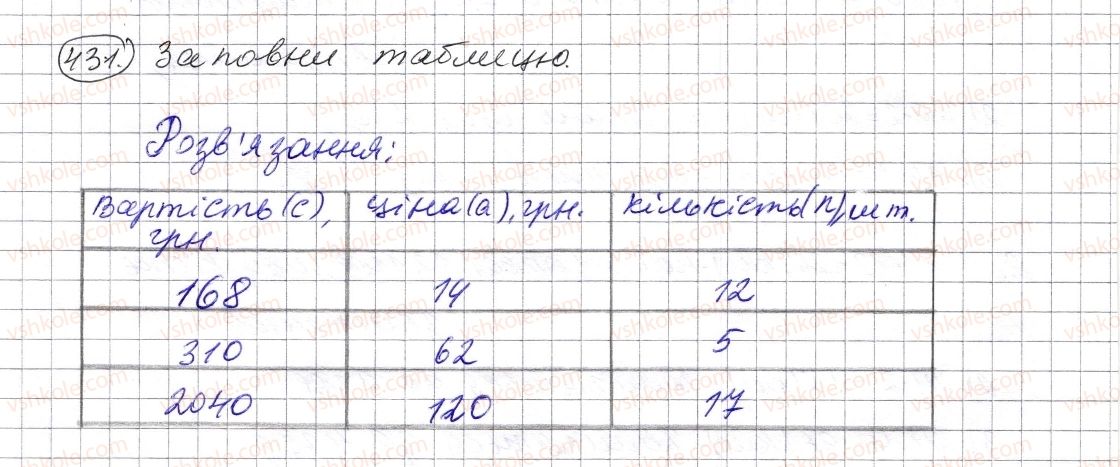 431. Заповни таблицю.
Розв'язання:
Вартість (с), грн. ціна (а), грн. кількість (n), шт.
168 14 12
310 62 5
2040 120 17